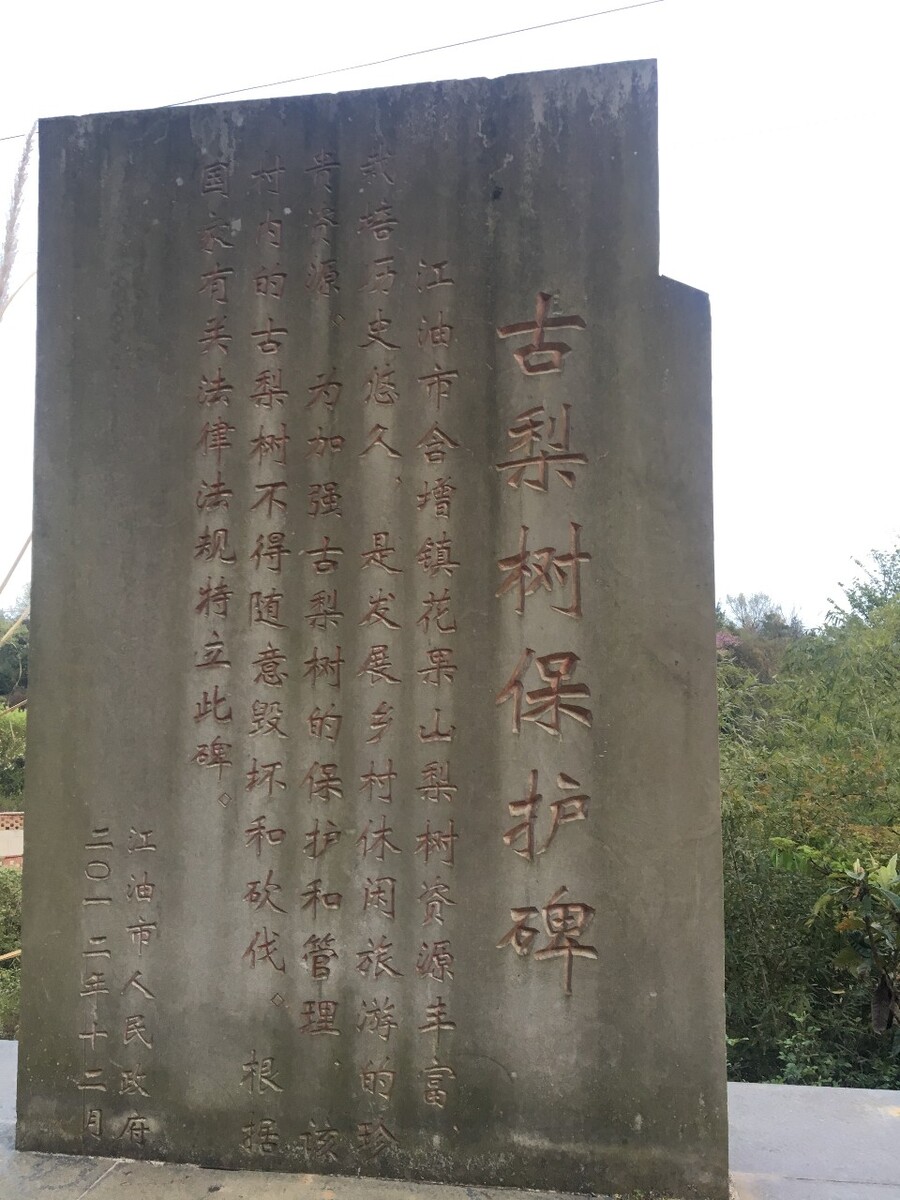 古梨树保护碑
江油市含增镇花果山梨树资源丰富、
栽培历史悠久，是发展乡村休闲旅游的珍
贵资源。为加强古梨树的保护和管理、该
村内的古梨树不得随意毁坏和砍伐。根据
国家有关法律法规特立此碑。
江油市人民政府
二〇一二年十二月